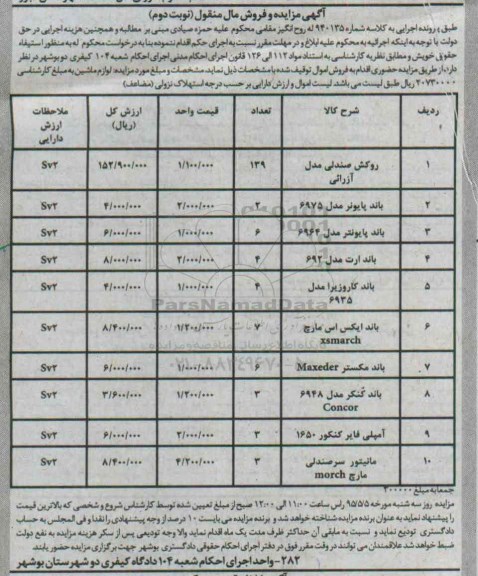 آگهی مزایده و فروش مال منقول (نوبت دوم)
طبق پرونده اجرایی به کلاسه شماره ۹۴۰۱۳۵ له روح انگیز مقامی محکوم علیه حمزه صیادی مبنی بر مطالبه و همچنین هزینه اجرایی در حق
دولت با توجه به اینکه اجرائیه به محکوم علیه ابلاغ و در مهلت مقرر نسبت به اجرای حکم اقدام ننموده بنا به درخواست محکوم له به منظور استیفاء
حقوق خویش و مطابق نظریه کارشناسی به استناد مواد ۱۱۲ الی ۱۲۶ قانون اجرای احکام مدنی اجرای احکام شعبه ۱۰۴ کیفری دو بوشهر در نظر
دارد از طریق مزایده حضوری اقدام به فروش اموال توقیف شده با مشخصات ذیل نماید. مشخصات و مبلغ مورد مزایده: لوازم ماشین به مبلغ کارشناسی
۲۰۷۳۰۰۰۰ ریال طبق لیست می باشد. لیست اموال و ارزش دارایی بر حسب درجه استهلاک نزولی (مضاعف)
ردیف شرح کالا تعداد قیمت واحد ارزش کل (ریال) ملاحظات ارزش دارایی
۱ روکش صندلی مدل آزرائی ۱۳۹ ۱/۱۰۰/۰۰۰ ۱۵۲/۹۰۰/۰۰۰ Sv۲
۲ باند پایونر مدل ۶۹۷۵ ۲ ۲/۰۰۰/۰۰۰ ۴/۰۰۰/۰۰۰ Sv۲
۳ باند پایونتر مدل ۶۹۶۴ ۶ ۱/۰۰۰/۰۰۰ ۶/۰۰۰/۰۰۰ Sv۲
۴ باند ارت مدل ۶۹۲ ۴ ۲/۰۰۰/۰۰۰ ۸/۰۰۰/۰۰۰ Sv۲
۵ باند کاروزیرا مدل ۶۹۳۵ ۴ ۱/۰۰۰/۰۰۰ ۴/۰۰۰/۰۰۰ Sv۲
۶ باند ایکس اس مارچ xsmarch ۷ ۱/۲۰۰/۰۰۰ ۸/۴۰۰/۰۰۰ Sv۲
۷ باند مکستر Maxeder ۶ ۱/۰۰۰/۰۰۰ ۶/۰۰۰/۰۰۰ Sv۲
۸ باند کُنکر مدل ۶۹۴۸ Concor ۳ ۱/۲۰۰/۰۰۰ ۳/۶۰۰/۰۰۰ Sv۲
۹ آمپلی فایر کنکور ۱۶۵۰ ۳ ۲/۰۰۰/۰۰۰ ۶/۰۰۰/۰۰۰ Sv۲
۱۰ مانیتور سرصندلی مارچ morch ۳ ۴/۲۰۰/۰۰۰ ۸/۴۰۰/۰۰۰ Sv۲
ParsNamadData
پایگاه اطلاع رسانی مناقصه و مزایده
جمعا به مبلغ ۲۰۰۰۰۰
مزایده روز سه شنبه مورخه ۹۵/۵/۵ راس ساعت ۱۱:۰۰ الی ۱۲:۰۰ صبح از مبلغ تعیین شده توسط کارشناس شروع و شخصی که بالاترین قیمت
را پیشنهاد نماید به عنوان برنده مزایده شناخته خواهد شد و برنده مزایده می بایست ۱۰ درصد از وجه پیشنهادی را نقدا و فی المجلس به حساب
دادگستری تودیع نماید و نسبت به مابقی آن حداکثر ظرف مدت یک ماه اقدام نماید والا وجه تودیعی پس از سکر هزینه مزایده به نفع دولت
ضبط خواهد شد. علاقمندان می توانند در وقت مقرر فوق در دفتر اجرای احکام حقوقی دادگستری بوشهر جهت برگزاری مزایده حضور یابند.
۲۸۲- واحد اجرای احکام شعبه ۱۰۴ دادگاه کیفری دو شهرستان بوشهر